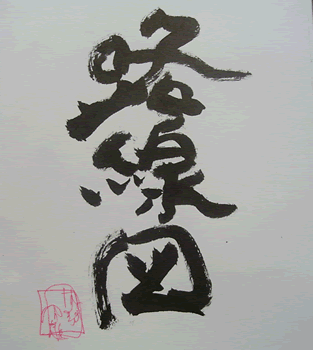 路線図